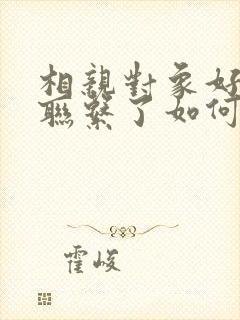 相親對象好
聯繫了如何
霍峻